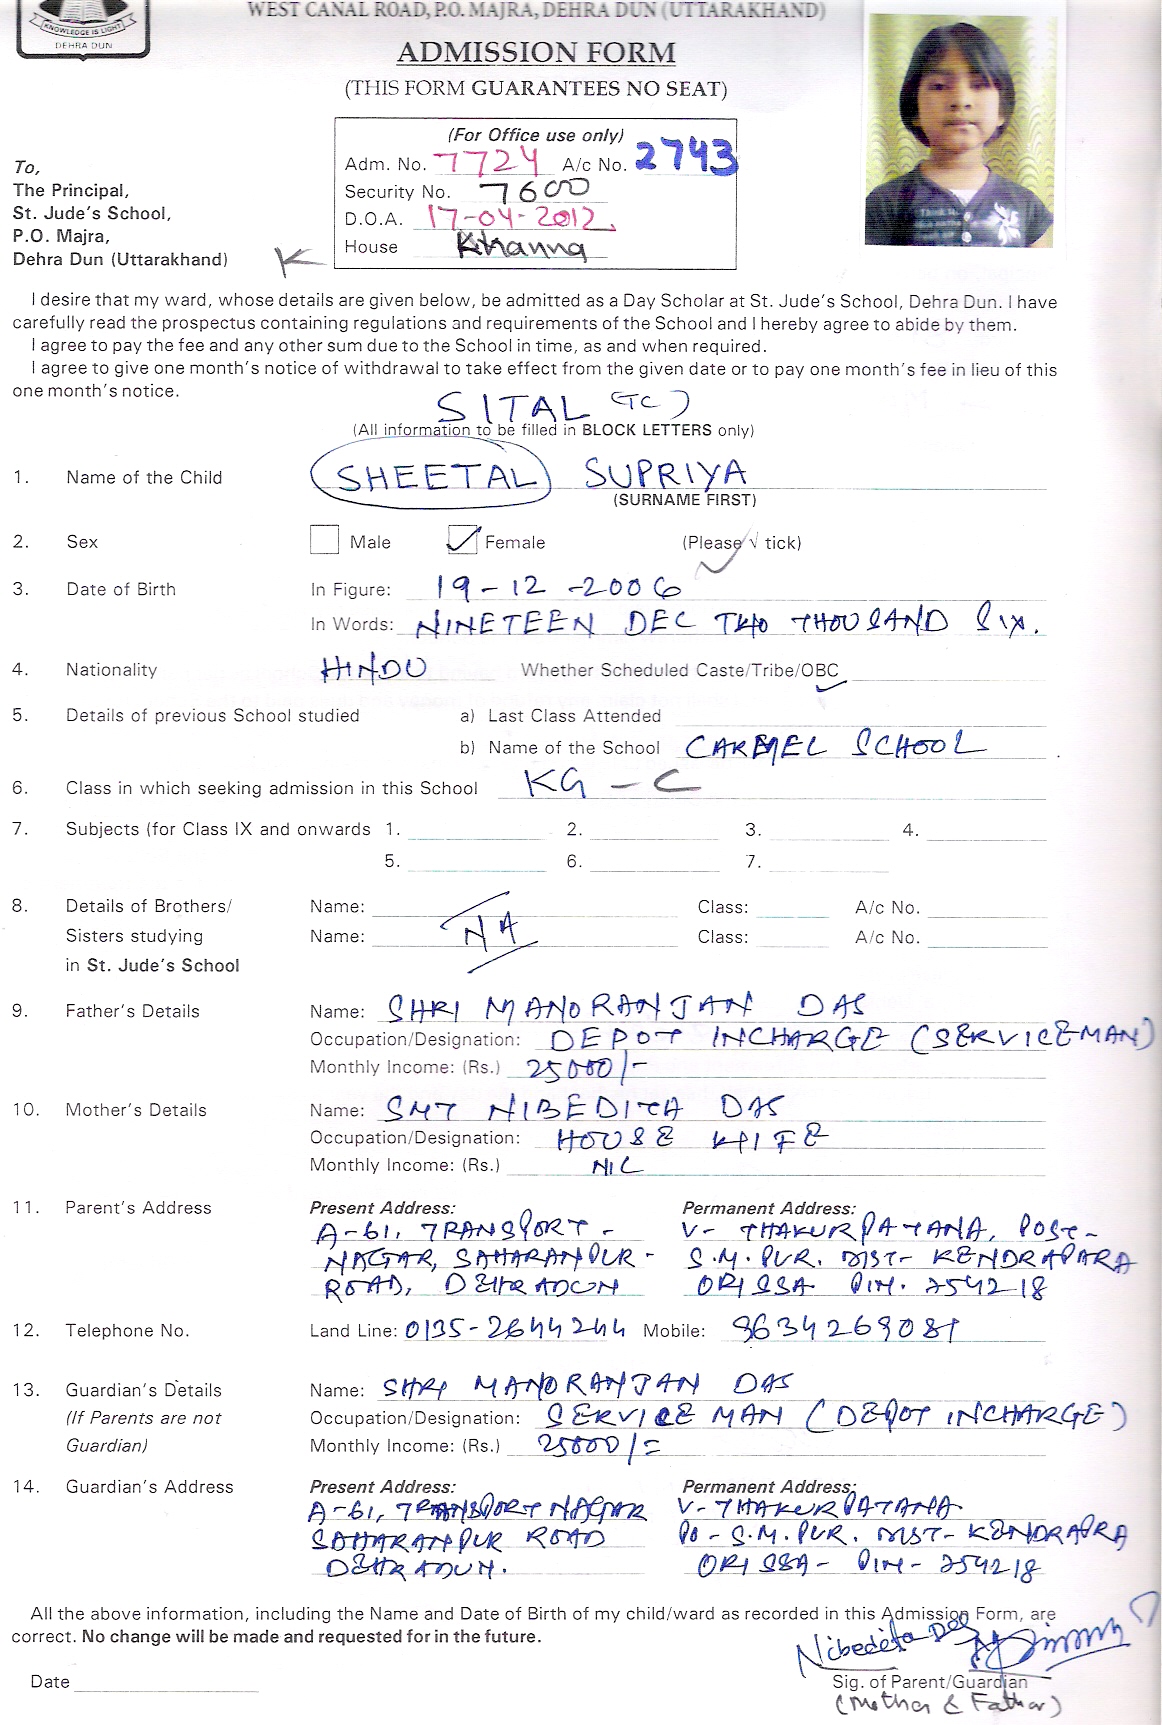 KNOWLEDGE IS LIGHT
DEHRA DUN
WEST CANAL ROAD, P.O. MAJRA, DEHRA DUN (UTTARAKHAND)
ADMISSION FORM
(THIS FORM GUARANTEES NO SEAT)
(For Office use only)
Adm. No. 7724 A/c No. 2743
Security No. 7600
D.O.A. 17-04-2012.
House Khanna
To,
The Principal,
St. Jude's School,
P.O. Majra,
Dehra Dun (Uttarakhand)
K
I desire that my ward, whose details are given below, be admitted as a Day Scholar at St. Jude's School, Dehra Dun. I have
carefully read the prospectus containing regulations and requirements of the School and I hereby agree to abide by them.
I agree to pay the fee and any other sum due to the School in time, as and when required.
I agree to give one month's notice of withdrawal to take effect from the given date or to pay one month's fee in lieu of this
one month's notice.
SITAL (TC)
(All information to be filled in BLOCK LETTERS only)
1. Name of the Child SHEETAL SUPRIYA
(SURNAME FIRST)
2. Sex Male Female (Please √ tick)
3. Date of Birth In Figure: 19-12-2006
In Words: NINETEEN DEC TWO THOUSAND SIX.
4. Nationality HINDU Whether Scheduled Caste/Tribe/OBC
5. Details of previous School studied a) Last Class Attended
b) Name of the School CARMEL SCHOOL
6. Class in which seeking admission in this School KG - C
7. Subjects (for Class IX and onwards 1. 2. 3. 4.
5. 6. 7.
8. Details of Brothers/ Name: Class: A/c No.
Sisters studying Name: NA Class: A/c No.
in St. Jude's School
9. Father's Details Name: SHRI MANORANJAN DAS
Occupation/Designation: DEPOT INCHARGE (SERVICEMAN)
Monthly Income: (Rs.) 25000/-
10. Mother's Details Name: SMT NIBEDITA DAS
Occupation/Designation: HOUSE WIFE
Monthly Income: (Rs.) NIL
11. Parent's Address Present Address: Permanent Address:
A-61, TRANSPORT- V- THAKURPATANA, POST-
NAGAR, SAHARANPUR- S.M.PUR. DIST- KENDRAPARA
ROAD, DEHRADUN ORISSA PIN. 754218
12. Telephone No. Land Line: 0135-2644244 Mobile: 9634269081
13. Guardian's Details Name: SHRI MANORANJAN DAS
(If Parents are not Occupation/Designation: SERVICE MAN (DEPOT INCHARGE)
Guardian) Monthly Income: (Rs.) 25000/=
14. Guardian's Address Present Address: Permanent Address:
A-61, TRANSPORT NAGAR V-THAKURPATANA
SAHARANPUR ROAD PO-S.M.PUR. DIST-KENDRAPRA
DEHRADUN. ORISSA- PIN-754218
All the above information, including the Name and Date of Birth of my child/ward as recorded in this Admission Form, are
correct. No change will be made and requested for in the future.
Nibedita Das
Date Sig. of Parent/Guardian
(Mother & Father)